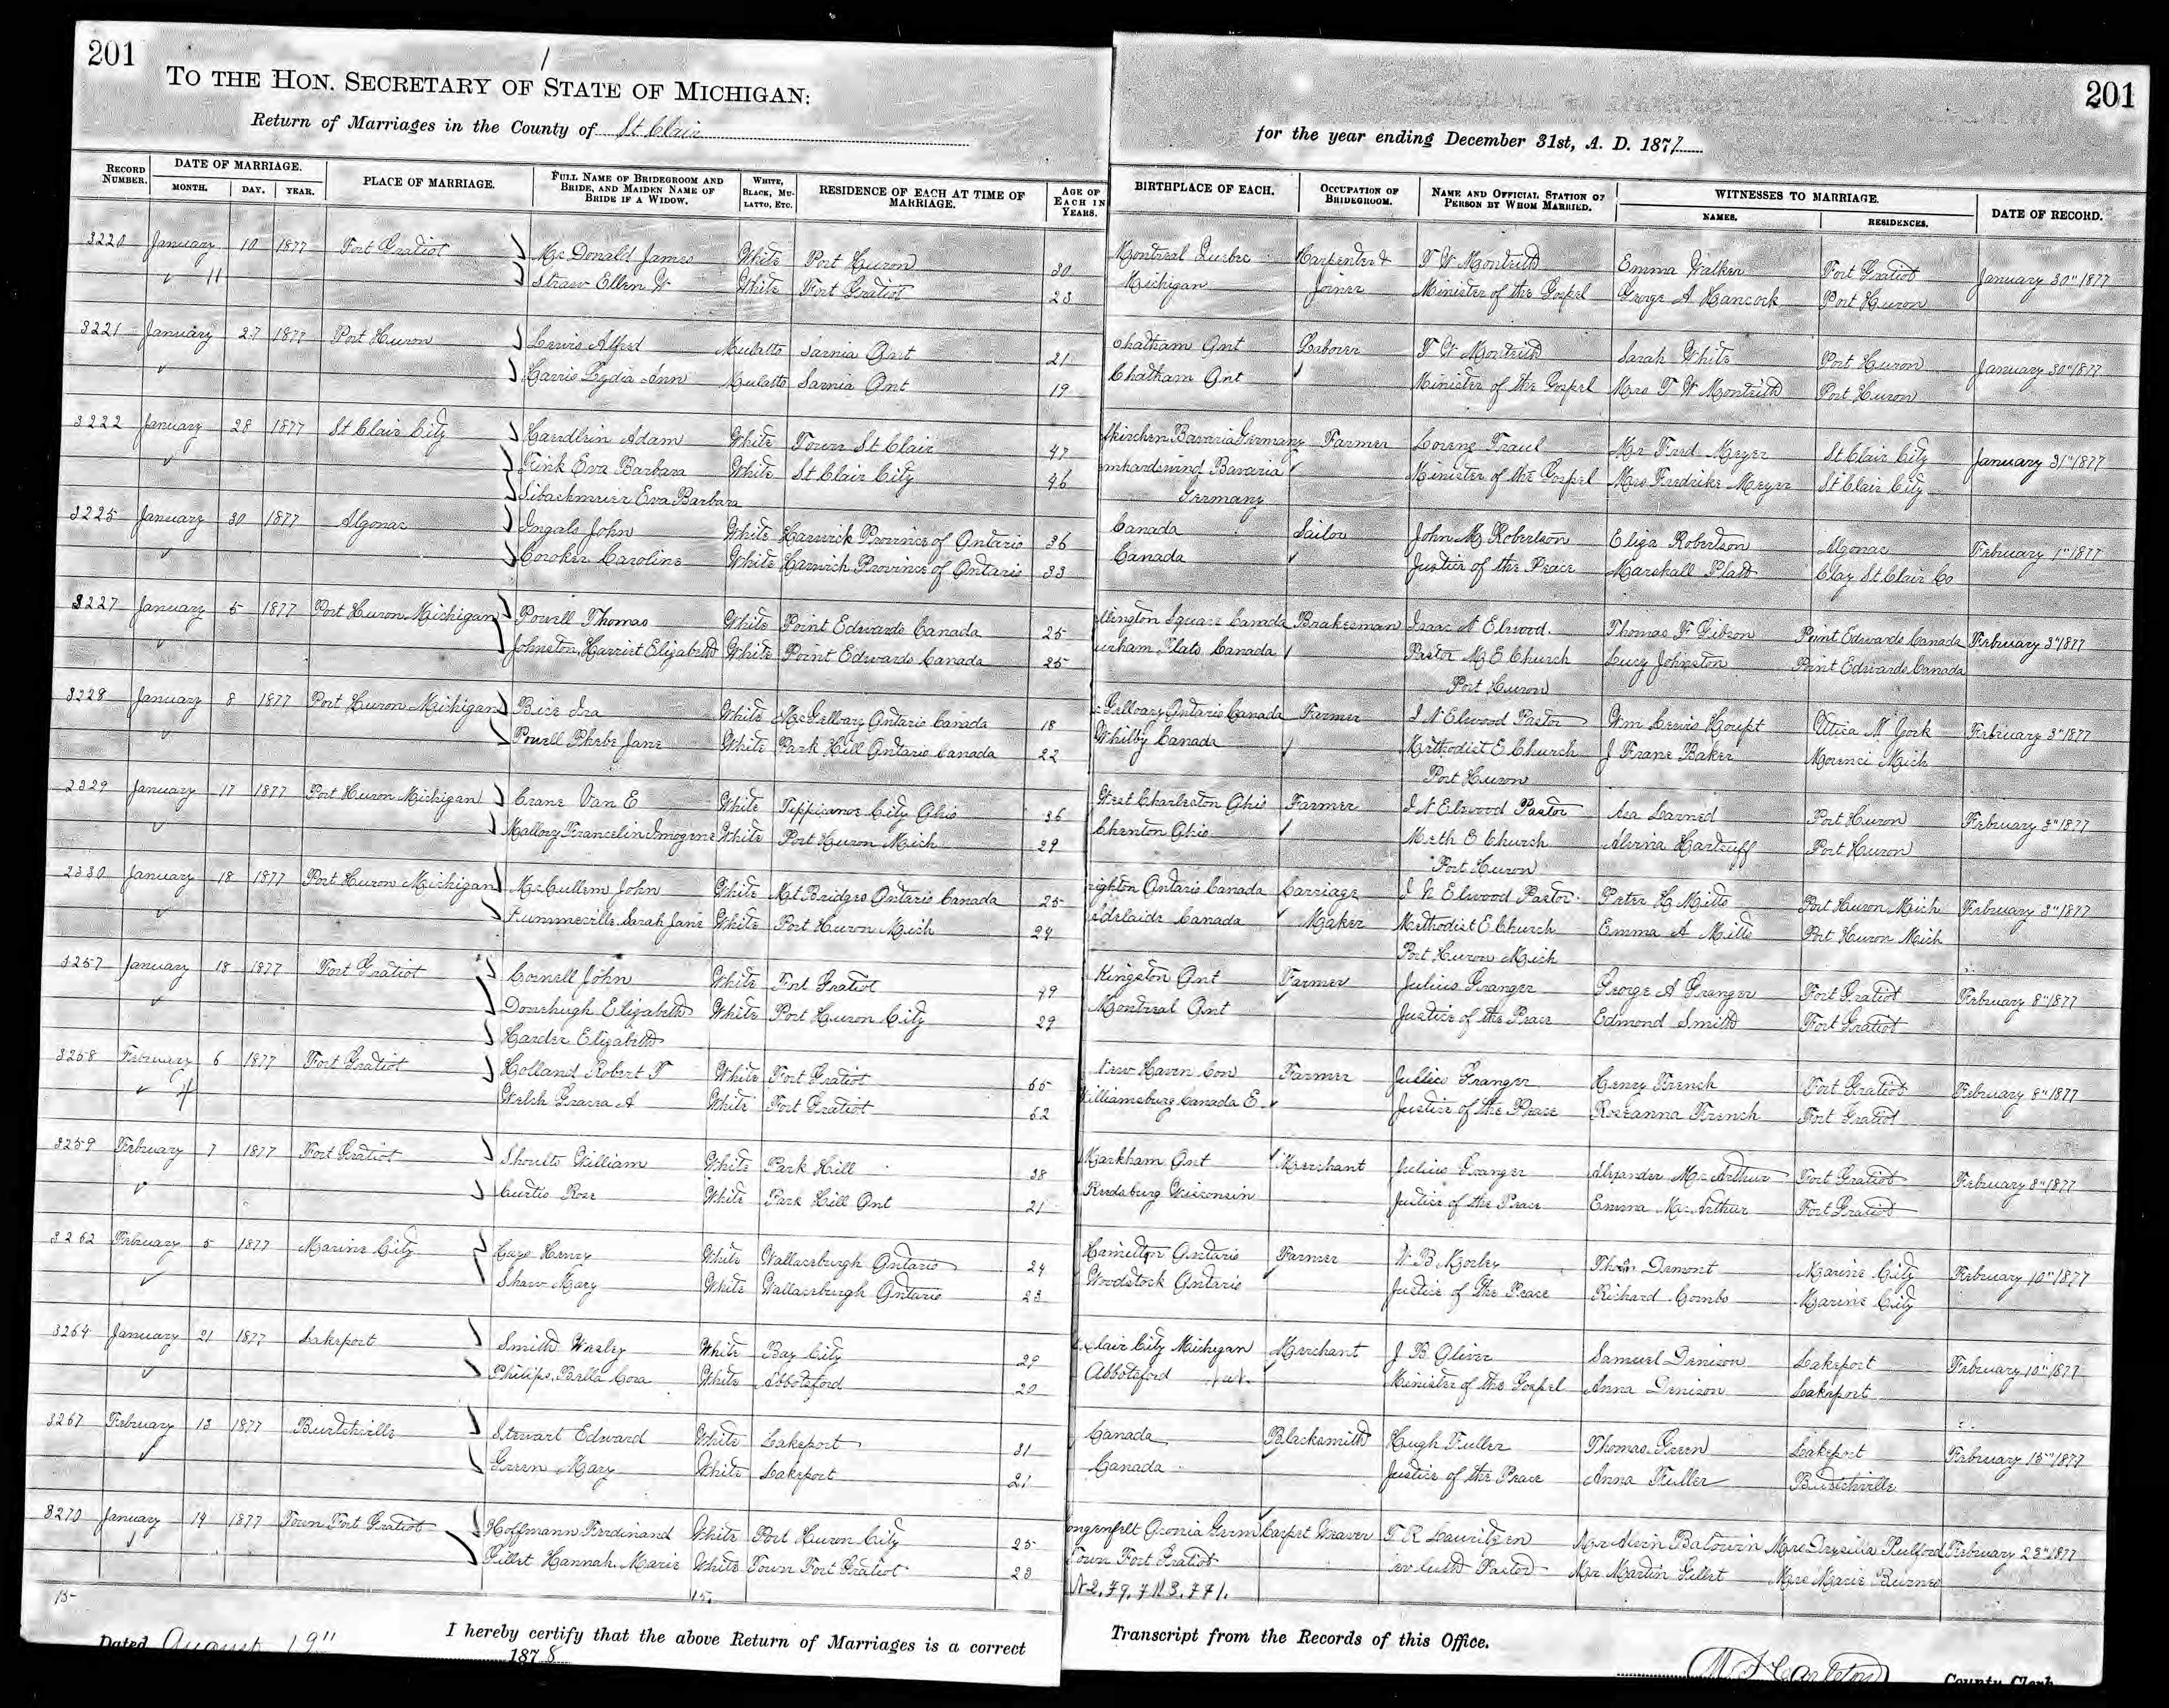 201
201
TO THE HON. SECRETARY OF STATE OF MICHIGAN:
Return of Marriages in the County of St Clair for the year ending December 31st, A. D. 1877
RECORD NUMBER. DATE OF MARRIAGE. MONTH. DAY. YEAR. PLACE OF MARRIAGE. FULL NAME OF BRIDEGROOM AND BRIDE, AND MAIDEN NAME OF BRIDE IF A WIDOW. WHITE, BLACK, MULATTO, ETC. RESIDENCE OF EACH AT TIME OF MARRIAGE. AGE OF EACH IN YEARS. BIRTHPLACE OF EACH. OCCUPATION OF BRIDEGROOM. NAME AND OFFICIAL STATION OF PERSON BY WHOM MARRIED. WITNESSES TO MARRIAGE. NAMES. RESIDENCES. DATE OF RECORD.
3220 January 10 1877 Fort Gratiot McDonald James White Port Huron 30 Montreal Quebec Carpenter & T W Monteith Emma Walker Fort Gratiot January 30" 1877
" 11 Straw Ellen W White Fort Gratiot 23 Michigan Joiner Minister of the Gospel George A Hancock Port Huron
3221 January 27 1877 Port Huron Lewis Alfred Mulatto Sarnia Ont 21 Chatham Ont Laborer T W Monteith Sarah White Port Huron January 30" 1877
Harris Lydia Ann Mulatto Sarnia Ont 19 Chatham Ont Minister of the Gospel Mrs T W Monteith Port Huron
3222 January 28 1877 St Clair City Haedlein Adam White Town St Clair 47 Bavaria Germany Farmer Lorenz Traul Mr Fred Meyer St Clair City January 31" 1877
Fink Eva Barbara White St Clair City 46 Bavaria Minister of the Gospel Mrs Fredrike Meyer St Clair City
Eva Barbara Germany
3225 January 30 1877 Algonac Ingals John White Harwick Province of Ontario 36 Canada Sailor John M Robertson Eliza Robertson Algonac February 1" 1877
Croker Caroline White Harwich Province of Ontario 33 Canada Justice of the Peace Marshall Platt Clay St Clair Co
3227 January 5 1877 Port Huron Michigan Powell Thomas White Point Edwards Canada 25 llington Square Canada Brakesman Isaac N Elwood Thomas F Gibson Point Edwards Canada February 3" 1877
Johnston Harriet Elizabeth White Point Edwards Canada 25 Flats Canada Pastor M E Church Lucy Johnston Point Edwards Canada
Port Huron
3228 January 8 1877 Port Huron Michigan Bice Ira White McGellvary Ontario Canada 18 Gellvary Ontario Canada Farmer I N Elwood Pastor Wm Lewis Houpt Utica N York February 3" 1877
Powell Phebe Jane White Park Hill Ontario Canada 22 Whitby Canada Methodist E Church J Frane Baker Morenci Mich
Port Huron
2329 January 17 1877 Port Huron Michigan Crane Van E White Tippicanoe City Ohio 36 West Charleston Ohio Farmer I N Elwood Pastor Asa Larned Port Huron February 3" 1877
Mallory Francelin Imogene White Port Huron Mich 29 Chenton Ohio Meth E Church Alvina Hartsuff Port Huron
Port Huron
2330 January 18 1877 Port Huron Michigan McCullem John White Mt Bridges Ontario Canada 25 righton Ontario Canada Carriage I N Elwood Pastor Peter H Mitts Port Huron Mich February 3" 1877
Summerville Sarah Jane White Port Huron Mich 24 Adelaide Canada Maker Methodist E Church Emma A Mitts Port Huron Mich
Port Huron Mich
3257 January 18 1877 Fort Gratiot Cornell John White Fort Gratiot 49 Kingston Ont Farmer Julius Granger George A Granger Fort Gratiot February 8" 1877
Donehugh Elizabeth White Port Huron City 29 Montreal Ont Justice of the Peace Edmond Smith Fort Gratiot
Harder Elizabeth
3258 February 6 1877 Fort Gratiot Holland Robert T White Fort Gratiot 65 New Haven Con Farmer Julius Granger Henry French Fort Gratiot February 8" 1877
Welsh A White Fort Gratiot 52 Williamsburg Canada E. Justice of the Peace Roseanna French Fort Gratiot
3259 February 7 1877 Fort Gratiot Shoults William White Park Hill 38 Markham Ont Merchant Julius Granger Alexander McArthur Fort Gratiot February 8" 1877
Curtis Rose White Park Hill Ont 21 Reedsburg Wisconsin Justice of the Peace Emma McArthur Fort Gratiot
3262 February 5 1877 Marine City Cays Henry White Wallaceburgh Ontario 24 Hamilton Ontario Farmer W B Morley Thos Demont Marine City February 10" 1877
Shaw Mary White Wallaceburgh Ontario 23 Woodstock Ontario Justice of the Peace Richard Combs Marine City
3264 January 21 1877 Lakeport Smith Wesley White Bay City 29 t Clair City Michigan Merchant J B Oliver Samuel Denison Lakeport February 10" 1877
Philips Bella Cora White Abbotsford 20 Abbotsford Minister of the Gospel Anna Denison Lakeport
3267 February 13 1877 Burtchville Stewart Edward White Lakeport 31 Canada Blacksmith Hugh Fuller Thomas Green Lakeport February 15" 1877
Green Mary White Lakeport 21 Canada Justice of the Peace Anna Fuller Burtchville
3270 January 14 1877 Town Fort Gratiot Hoffmann Ferdinand White Port Huron City 25 Germ Carpet Weaver T R Lauritzen Baldwin Mrs Drysilla Pulford February 23" 1877
Gillet Hannah Marie White Town Fort Gratiot 23 Town Fort Gratiot Pastor Mr Martin Gillet Mrs Marie Burnes
15 15.
I hereby certify that the above Return of Marriages is a correct Transcript from the Records of this Office.
Dated August 19" 1878
County Clerk